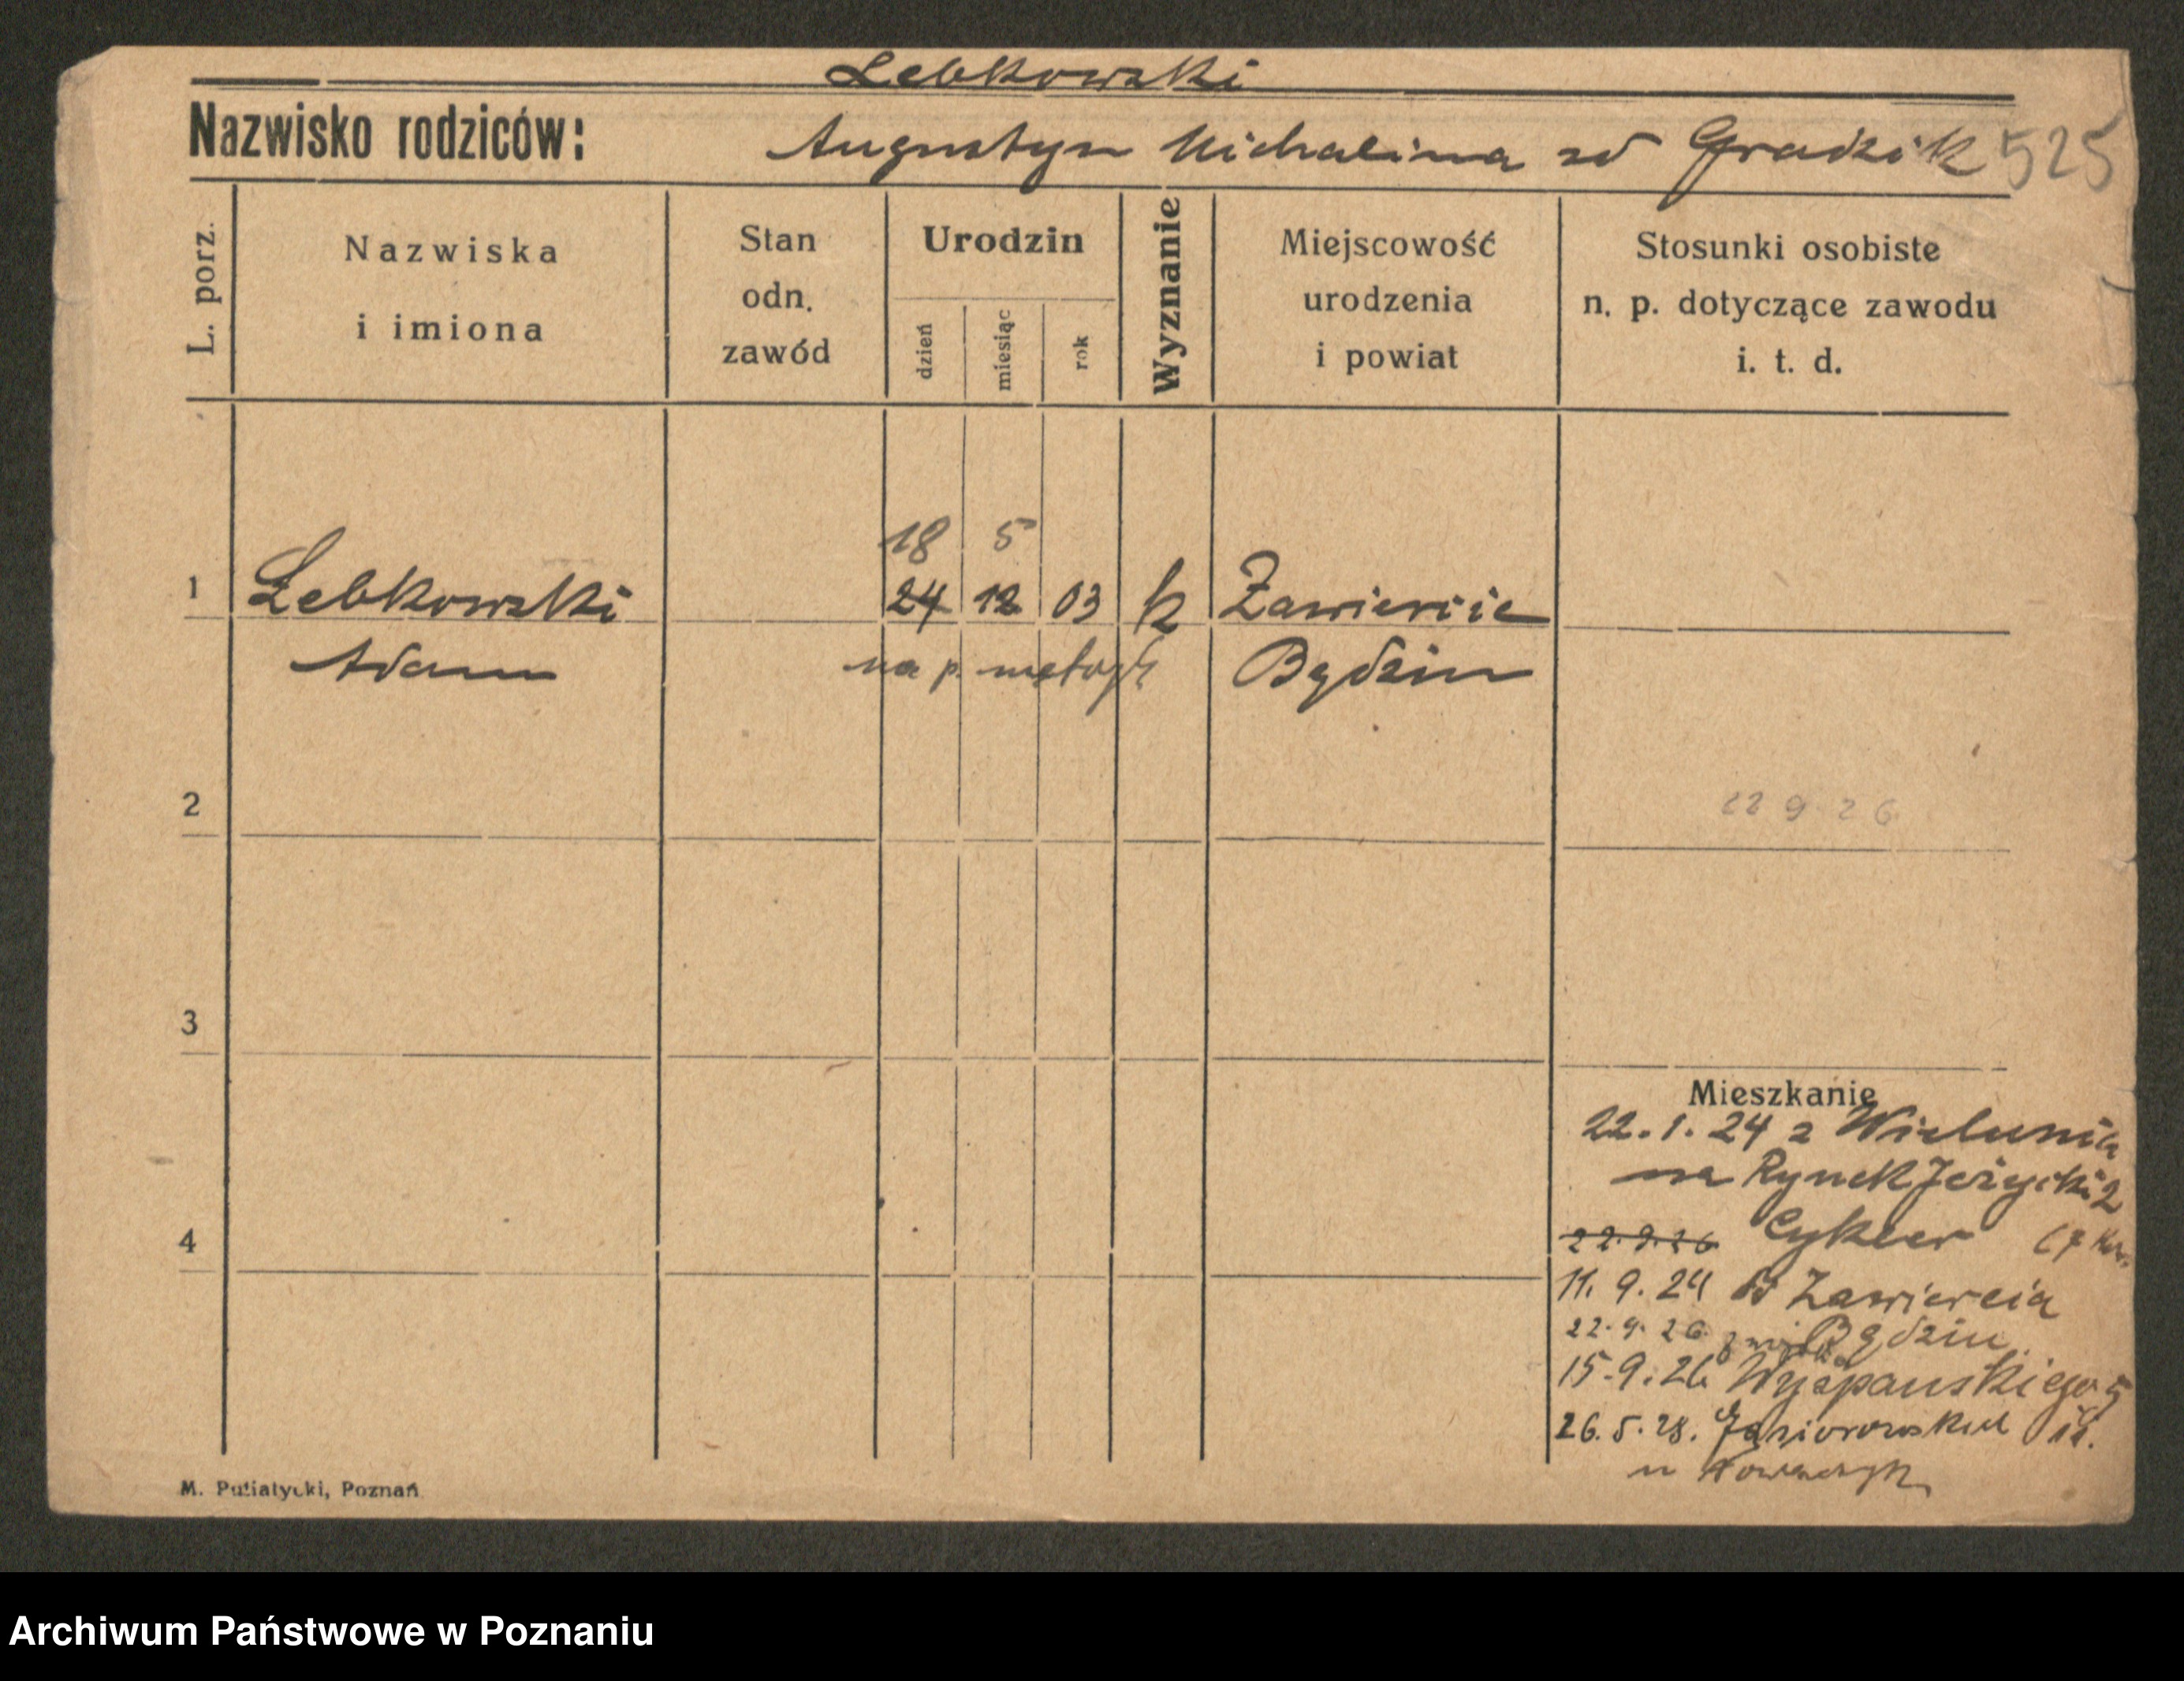 Lebkowski
Nazwisko rodziców: Augustyn Michalina zd Gradzik 525
L. porz.
Nazwiska
i imiona
Stan
odn.
zawód
Urodzin
dzień
miesiąc
rok
Wyznanie
Miejscowość
urodzenia
i powiat
Stosunki osobiste
n. p. dotyczące zawodu
i. t. d.
18 5
1 Łebkowski 24 12 03 k Zawiercie
Adam na p. metryk Będzin
2 22 9 26
3
Mieszkanie
22.1.24 z Wielunia
na Rynek Jeżycki 2
4 22.9.26 Cykler
11. 9. 24 do Zawiercia
22. 9. 26 Będzin
15.9.26 Wyspańskiego 5
26. 5. 28.
u Nowaczyk
M. Putiatycki, Poznań
Archiwum Państwowe w Poznaniu